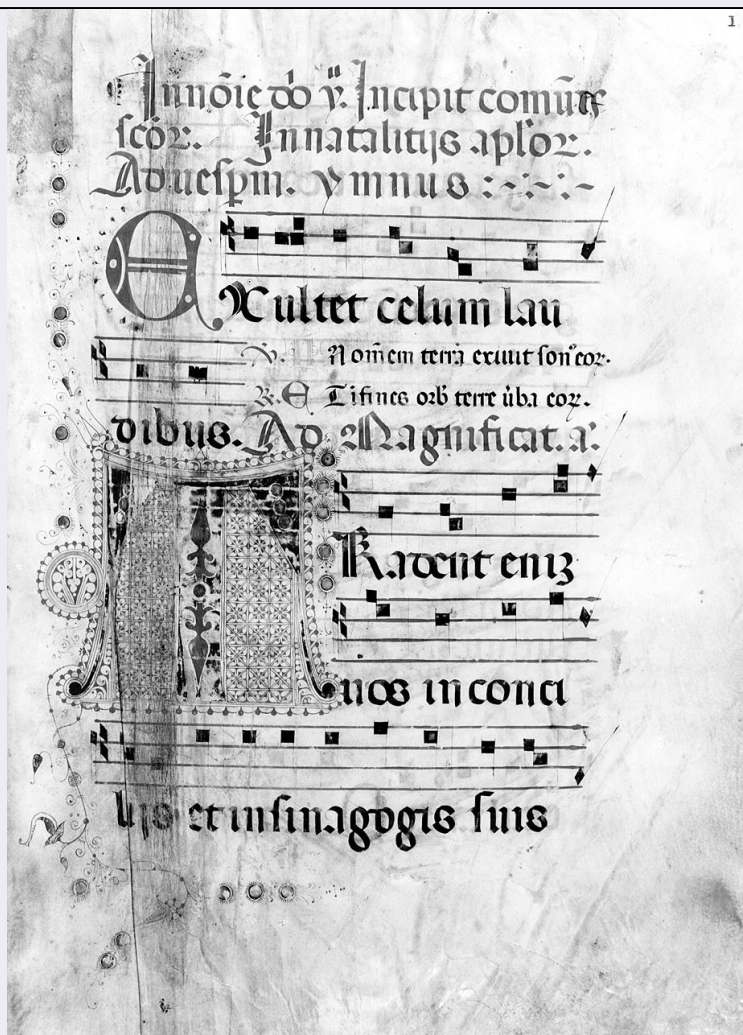 1
Innōie dō ỹ. Incipit comūe
scōr. In natalitijs aplor.
Ad uesp̄m. ymnus
EXultet celum lau
V. In omem terrā exiuit son' eor.
R. ET i fines orb terre ūba eor.
dibus. Ad Magnificat. a.
TRadent eniz
uos in conci
lijs et in sinagogis suis